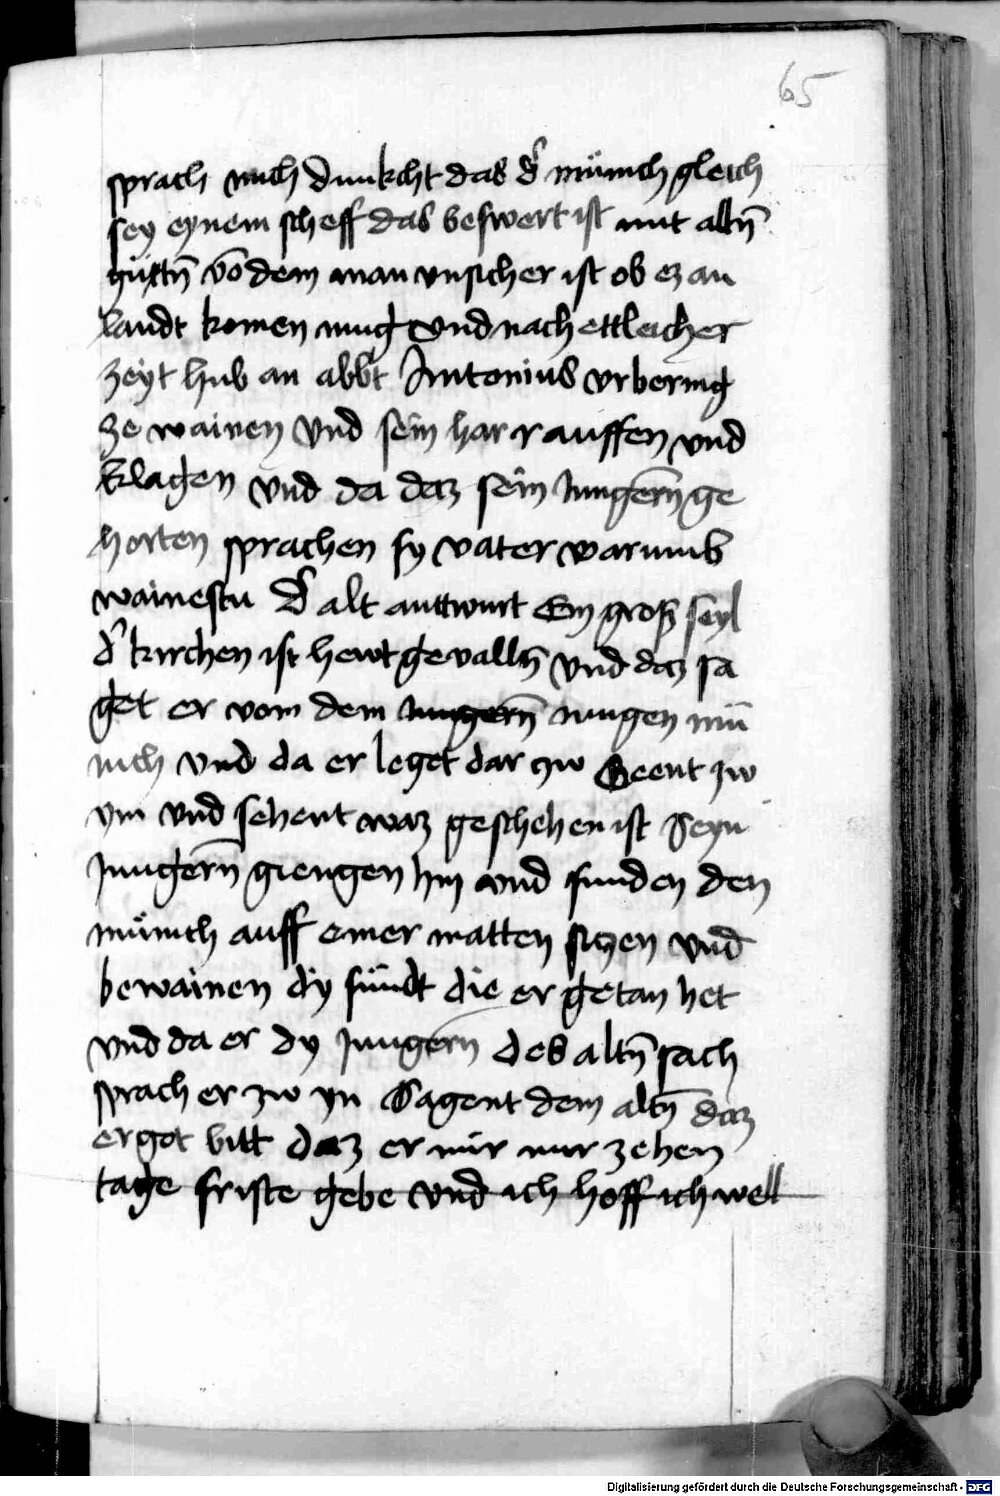 65
sprach mich dunkcht das d' münich gleich
sey eynem scheff das beswert ist mit altn̄
gütn̄ vō dem man vnsicher ist ob ez an
landt komen mug vnd nach ettleicher
zeyt hub an abbt Antonius vrbering
ze wainen vnd sein har rauffen vnd
klagen vnd da daz sein Jungern̄ ge
horten sprachen sy vater warumb
wainestu d' alt antwurt Ein groß seyl
d' kirchen ist hewt gevalln̄ vnd daz sa
get er vom dem jungern̄ jungen mü
nich vnd da er leget dar zw Geent zw
ym vnd sehent waz geschehen ist Seyn
Jungern̄ giengen hin vnd funden den
münich auff einer matten siczen vnd
bewainen dy sündt die er getan het
vnd da er dy Jungern̄ des altn̄ sach
sprach er zw yn Sagent dem altn̄ daz
er got bitt daz er mir nur zehen
tage friste gebe vnd ich hoff ich well
Digitalisierung gefördert durch die Deutsche Forschungsgemeinschaft - DFG